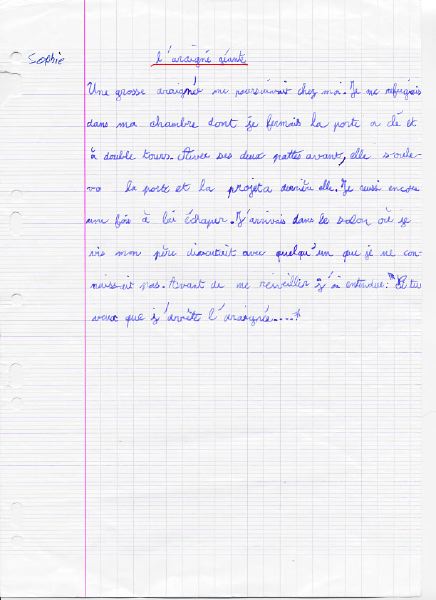 Sophie
l'araigné géante
Une grosse araignée me poursuivait chez moi. Je me réfugiais
dans ma chambre dont je fermais la porte a clé et
à double tours. Avec ses deux pattes avant, elle soule-
va la porte et la projeta derrière elle. Je réussi encore
une fois à lui échaper. J'arrivais dans le salon où je
vis mon père discutait avec quelqu'un que je ne con-
naissait pas. Avant de me réveiller j'ai entendue: "Et tu
veux que j'arrête l'araignée....?